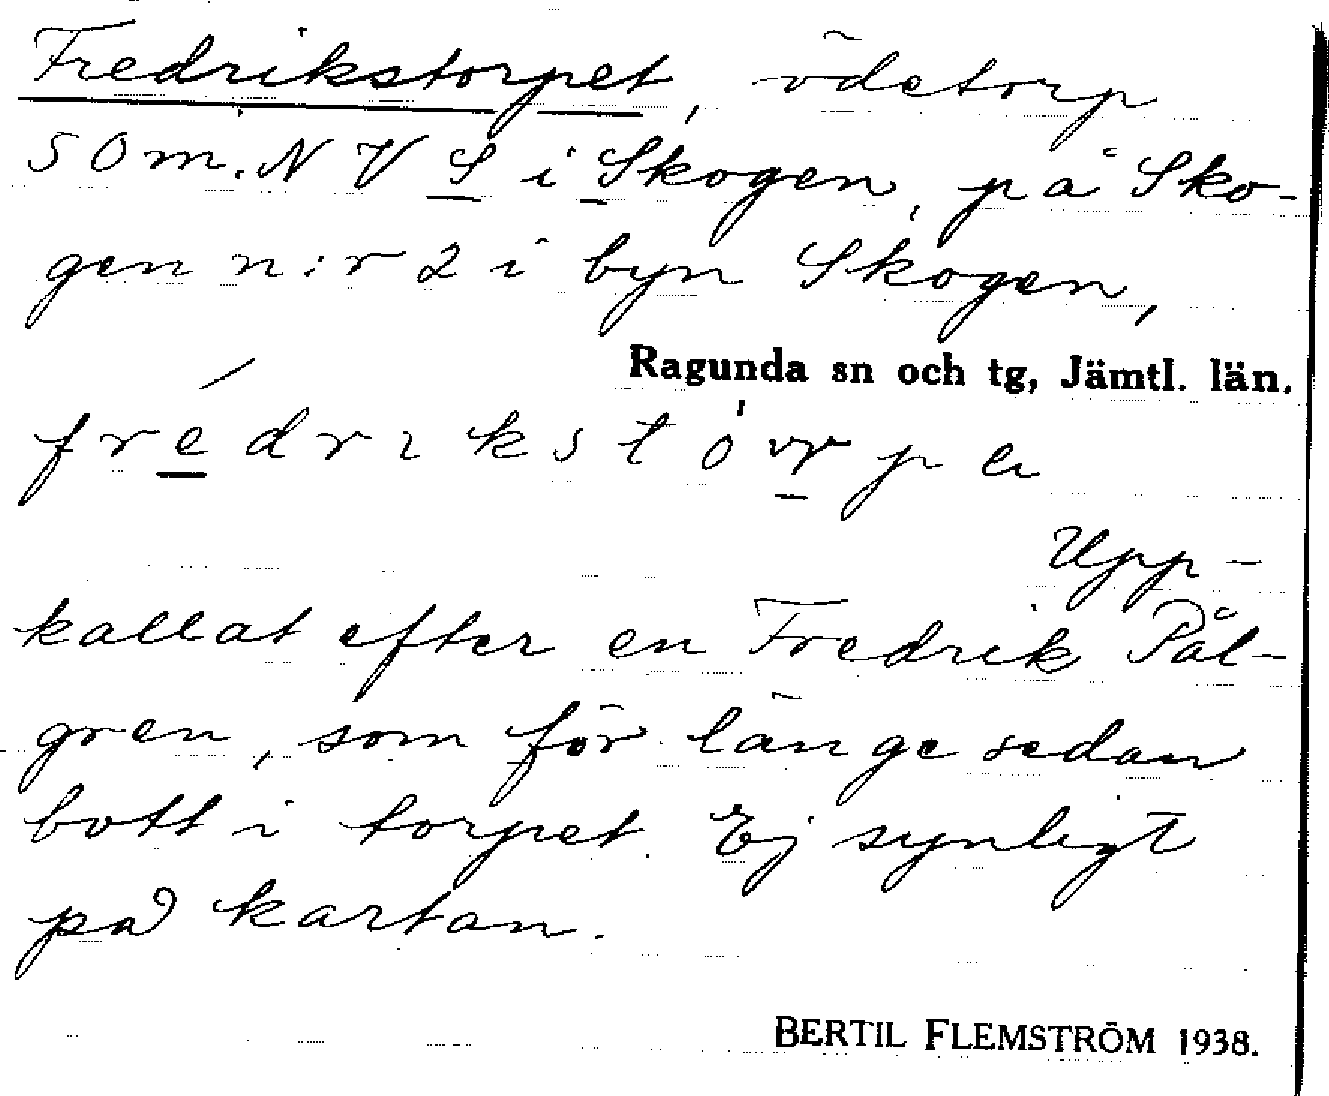 Fredrikstorpet, ödetorp
50 m. NV S i Skogen, på Sko-
gen n:r 2 i byn Skogen,
Ragunda sn och tg, Jämtl. län.
Upp-
kallat efter en Fredrik Pål-
gren, som för länge sedan
bott i torpet. Ej synligt
på kartan.
BERTIL FLEMSTRÖM 1938.